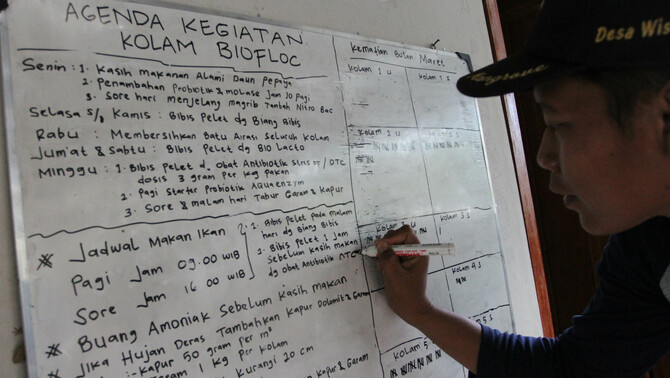 AGENDA KEGIATAN
KOLAM BIOFLOC
Senin : 1. Kasih makanan Alami Daun Pepaya
2. Penambahan Probiotik & molase Jam 10 pagi
3. Sore hari menjelang magrib Tambah Nitro Bac
Selasa s/d Kamis : Bibis Pelet dg Biang Bibis
Rabu : Membersihkan Batu Airasi Seluruh Kolam
Jum'at & Sabtu : Bibis Pelet dg Bio Lacto
Minggu : 1. Bibis Pelet d. Obat Antibiotik / OTC
dosis 3 gram Per kg Pakan
2. Pagi Starter Probiotik AquaEnzym
3. Sore & malam hari Tabur Garam & Kapur
* Jadwal Makan Ikan
Pagi Jam 09.00 WIB
Sore Jam 16 00 WIB
1. Bibis Pelet pada malam
hari dg Biang Bibis
2. Bibis Pelet 1 Jam
Sebelum Kasih makan
dg obat Antibiotik OTC
* Buang Amoniak Sebelum Kasih makan
* Jika Hujan Deras Tambahkan Kapur Dolomit & Garam
:- Kapur 50 gram per m³
1 Kg Per Kolam
Kurangi 20 cm
Kapur & Garam
Kematian Bulan Maret
Kolam 1 U
Kolam 1 S
Kolam U
Kolam S
Kolam U
Kolam S
Kolam 4 S
Kolam 5
Desa Wis